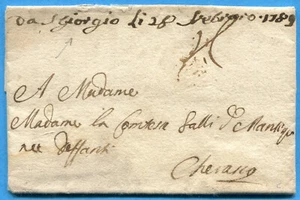 Da S Giorgio li 28 Febraio 1789
A Madame
Madame la Comtesse Galli De
née
Cherasco